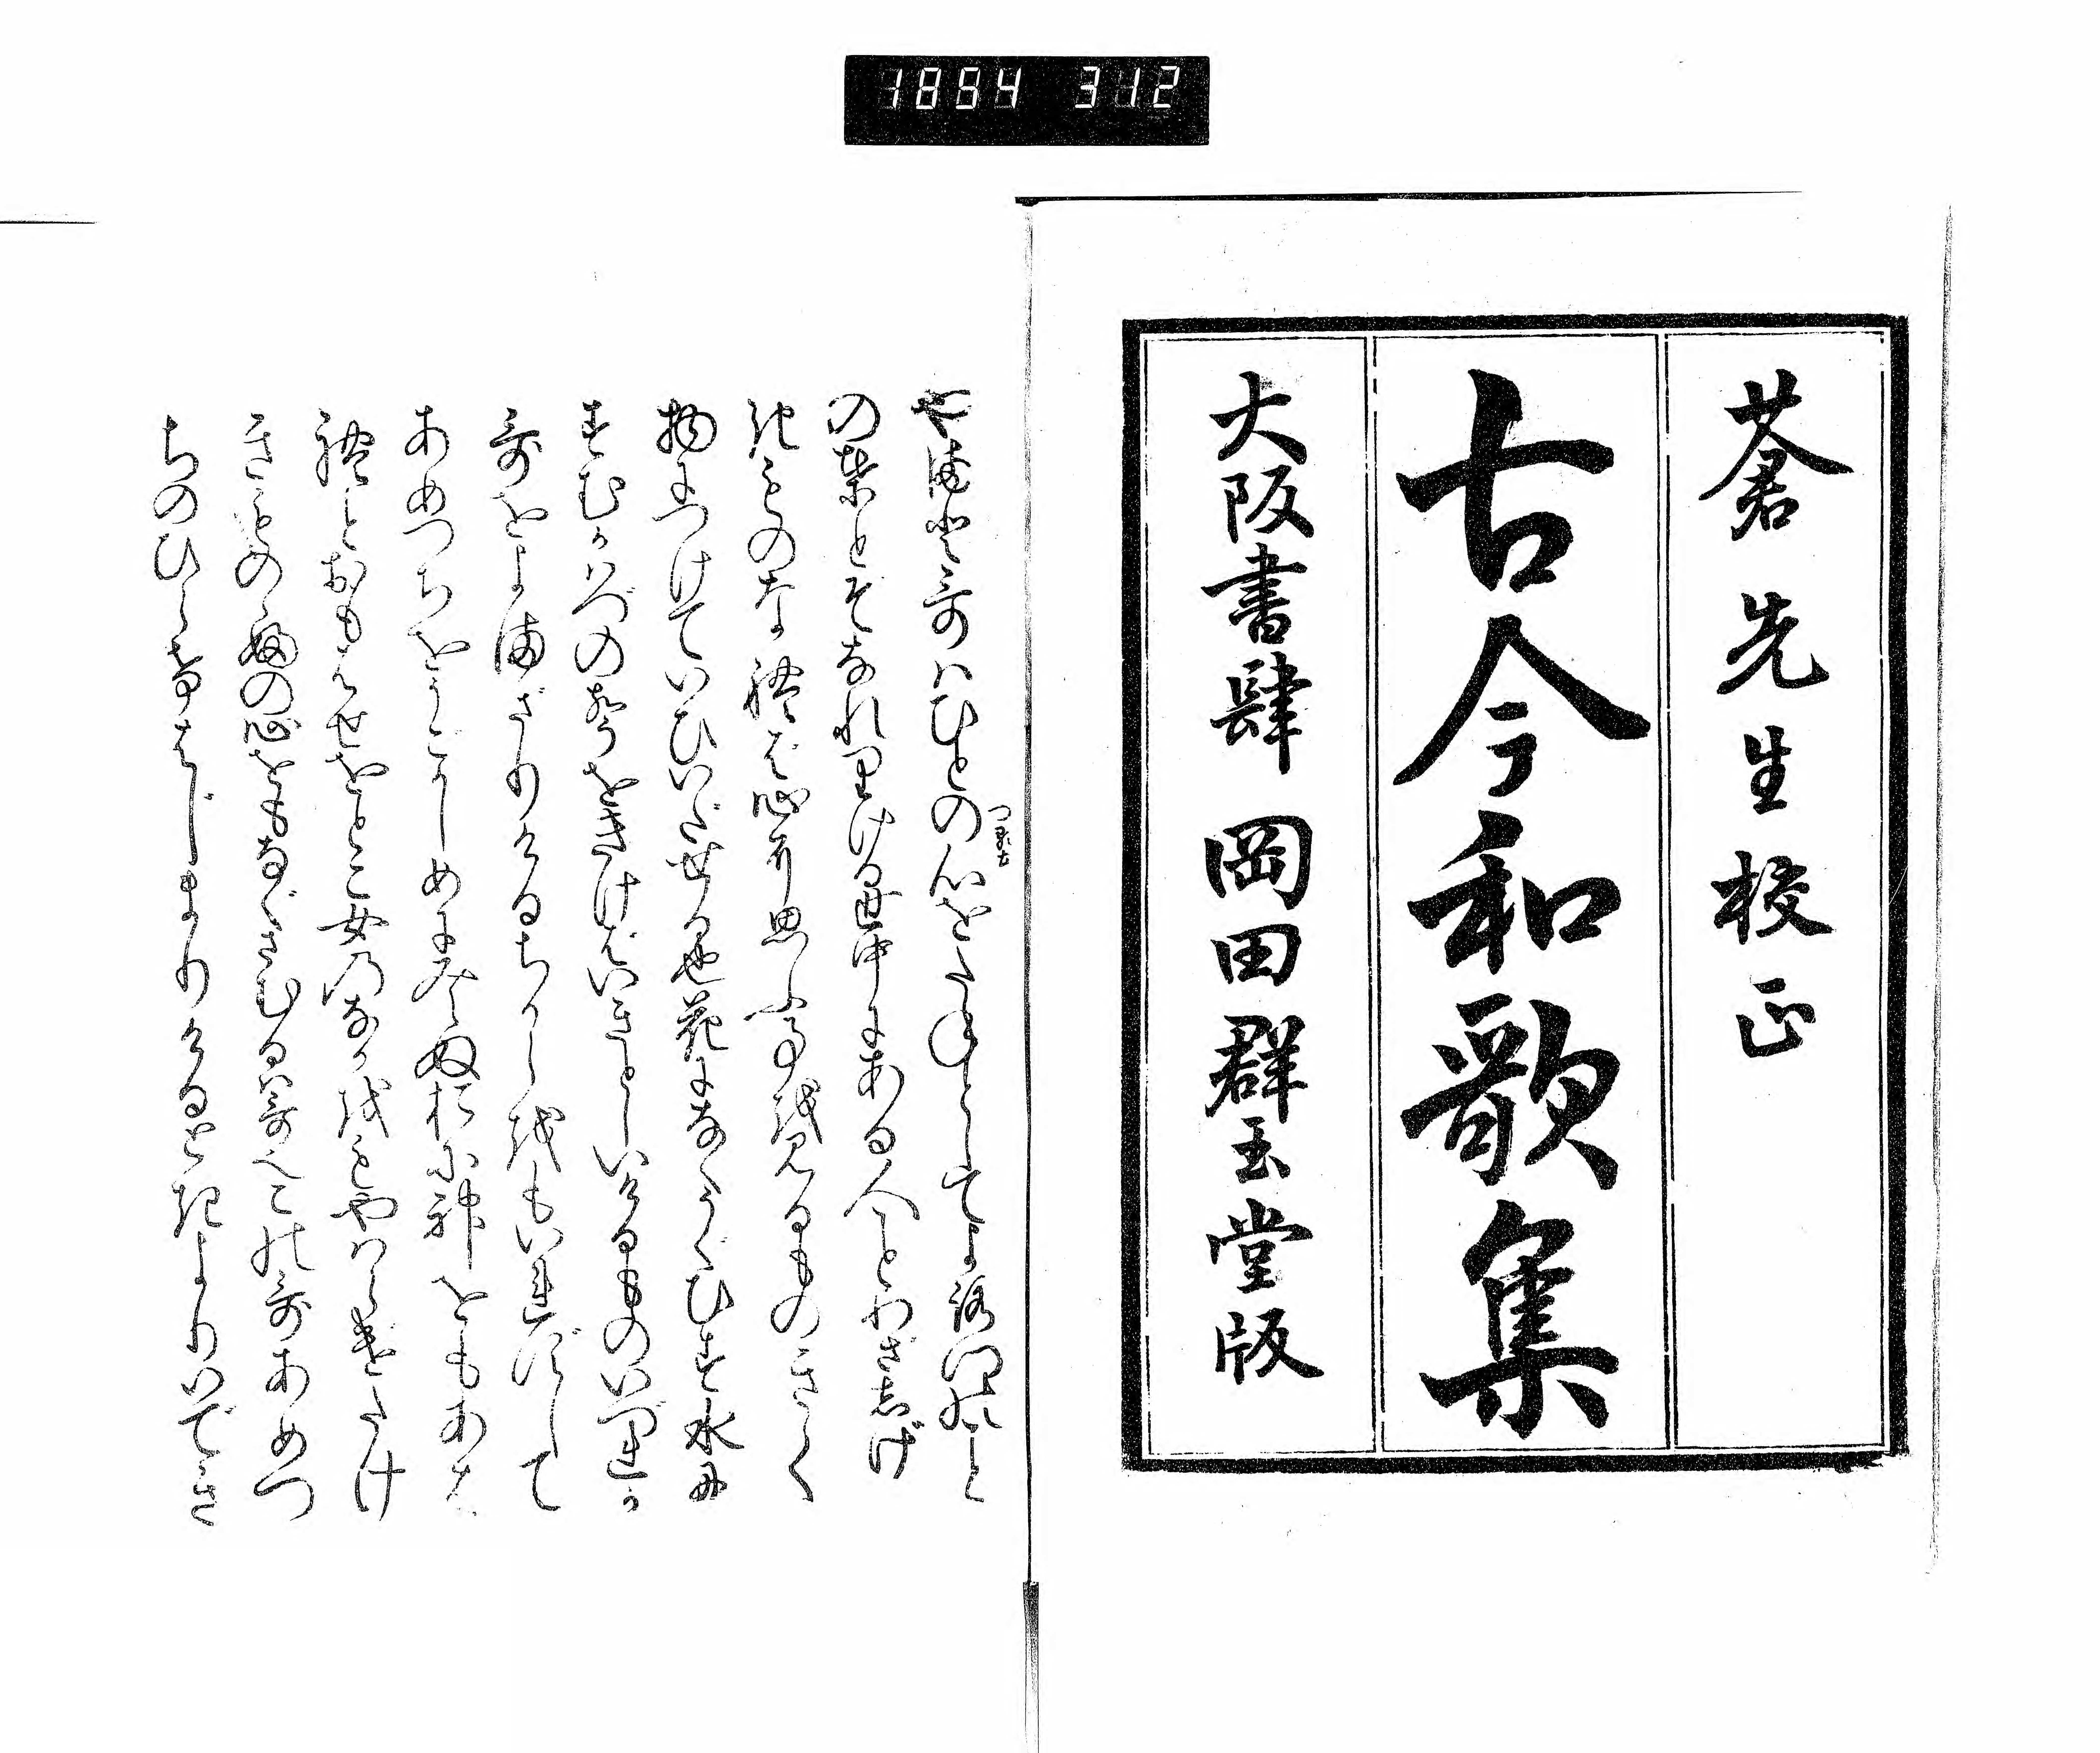 1854 312
蒼先生校正
古今和歌集
大阪書肆 岡田群玉堂版
やまと哥はひとの心をたねとしてよろづのこと
の葉とぞなれりける世中にある人ことわざしげ
きものなれば心に思ふ事を見るものきく
物につけていひいだせる也花になくうぐひす水に
すむかはづの聲をきけばいきとしいけるものいづれか
哥をよまざりけるちからをもいれずして
あめつちをうごかしめに見えぬおに神をもあは
れとおもはせをとこ女のなかをもやはらげたけ
きものゝふの心をもなぐさむるは哥なりこの哥あめつ
ちのひらけはじまりけるときよりいでき